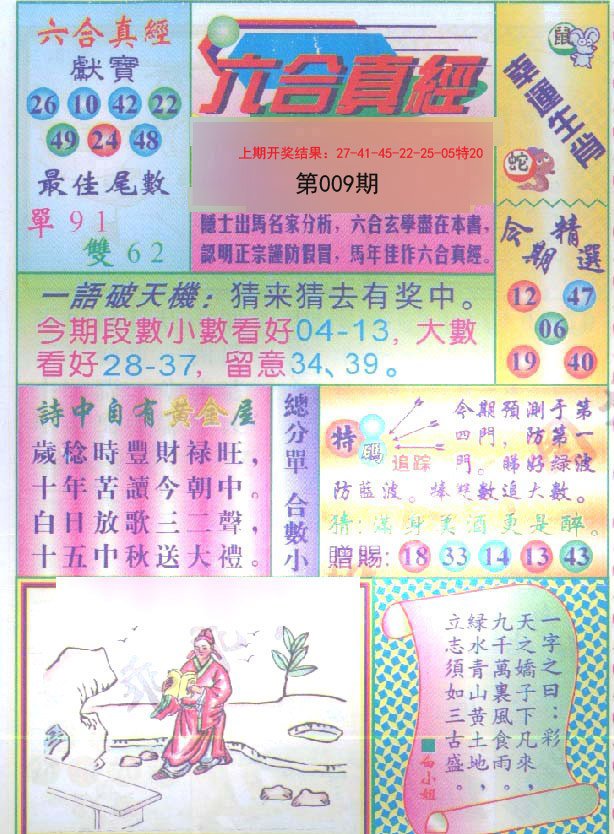 六合真經
獻寶
26 10 42 22
49 24 48
最佳尾數
單 9 1
雙 6 2
六合真經
上期开奖结果：27-41-45-22-25-05特20
第009期
隱士出馬名家分析，六合玄學盡在本書，
認明正宗謹防假冒，馬年佳作六合真經。
鼠
幸運生肖
蛇
今期精選
12 47
06
19 40
一語破天機：猜来猜去有奖中。
今期段數小數看好04-13，大數
看好28-37，留意34、39。
詩中自有黃金屋
歲稔時豐財禄旺，
十年苦讀今朝中。
白日放歌三二聲，
十五中秋送大禮。
總分單 合數小
特碼
追踪
今期預測于第
四門，防第一
門。睇好绿波
防藍波。捧雙數追大數。
猜：滿身美酒更是醉。
贈賜：18 33 14 13 43
一字之曰：彩
天之嬌子下凡來，
九千萬裏風食雨，
緑水青山黄土地，
立志須如三古盛。
白小姐